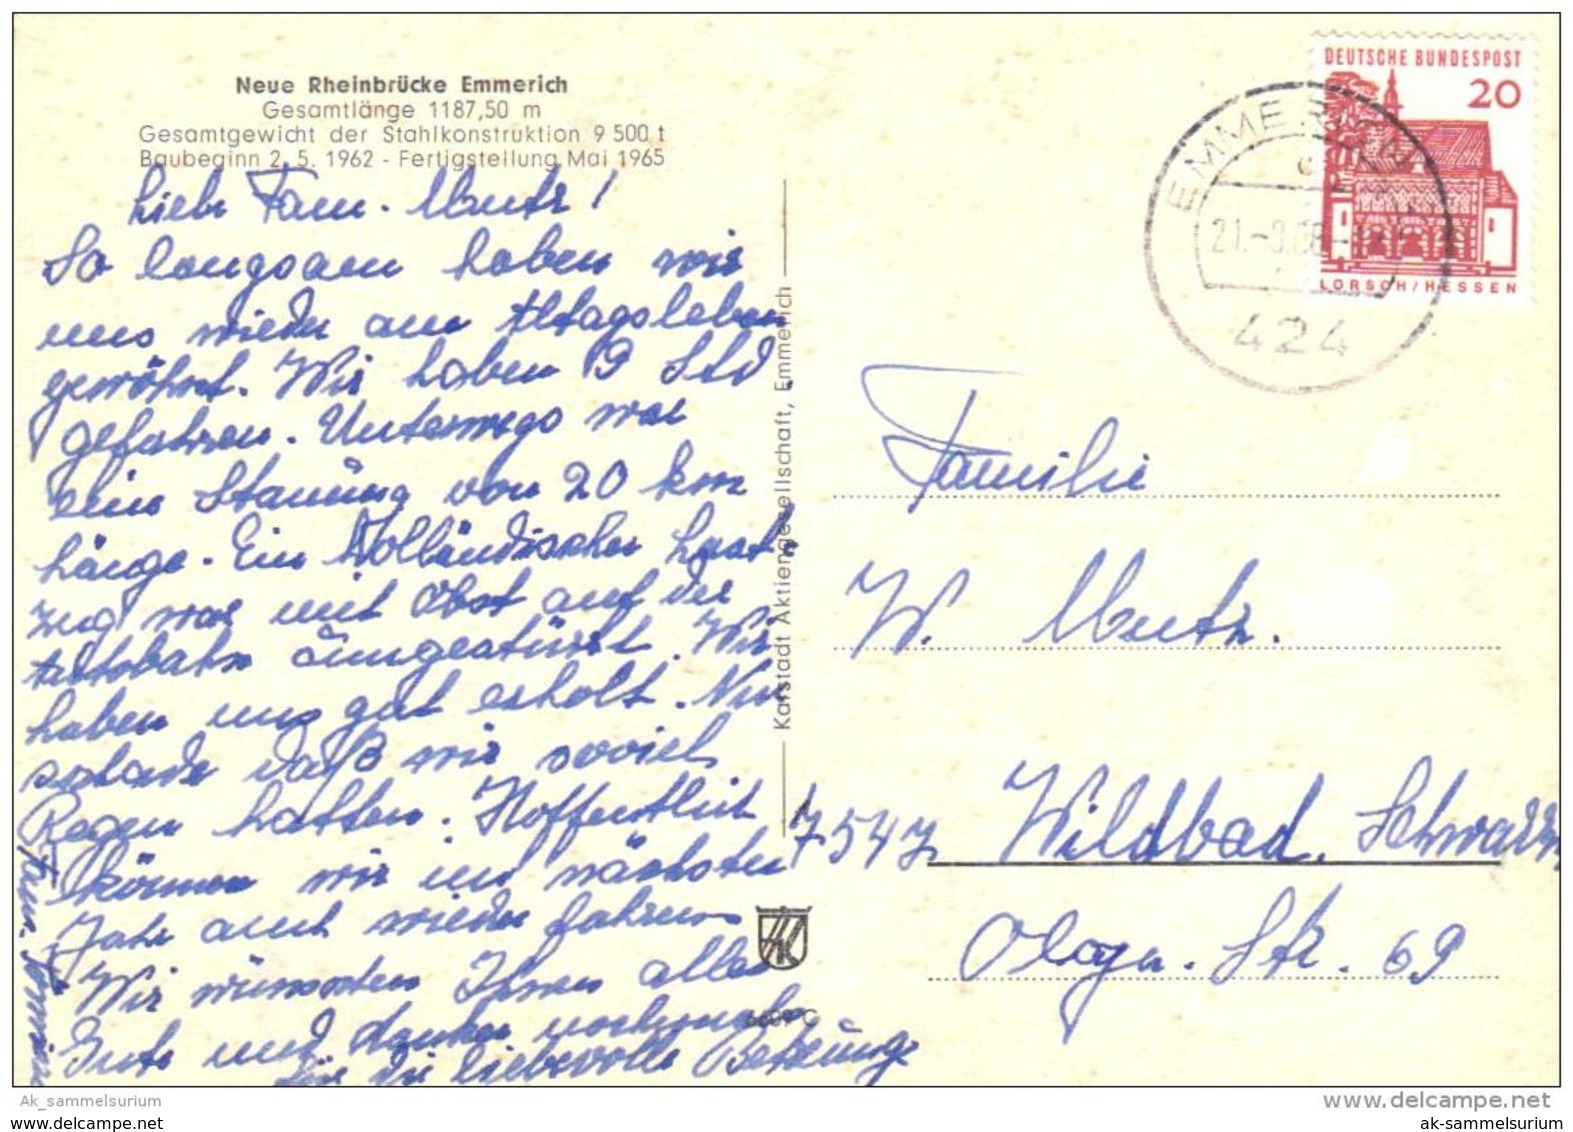 Neue Rheinbrücke Emmerich
Gesamtlänge 1187,50 m
Gesamtgewicht der Stahlkonstruktion 9 500 t
Baubeginn 2. 5. 1962 - Fertigstellung Mai 1965
Liebe Fam. Mutz!
So langsam haben wir
uns wieder am Alltagsleben
gewöhnt. Wir haben 9 Std.
gefahren. Unterwegs war
eine Stauüng von 20 km
länge. Ein Holländischer Last
zug war mit Obst auf der
Autobahn umgestürtzt. Wir
haben uns gut erholt. Nur
schade daß wir soviel
Regen hatten. Hoffentlich
können wir im nächsten
Jahr auch wieder fahren
Wir wünschen Ihnen alles
Gute und danken nochmals
für die liebevolle Betreüung
Fam.
Karstadt Aktiengesellschaft, Emmerich
6609 C
DEUTSCHE BUNDESPOST
20
LORSCH/HESSEN
EMMERICH
424
Familie
W. Mutz.
7547 Wildbad. Schwarzw
Olga. Str. 69
Ak_sammelsurium
www.delcampe.net
www.delcampe.net
ak-sammelsurium